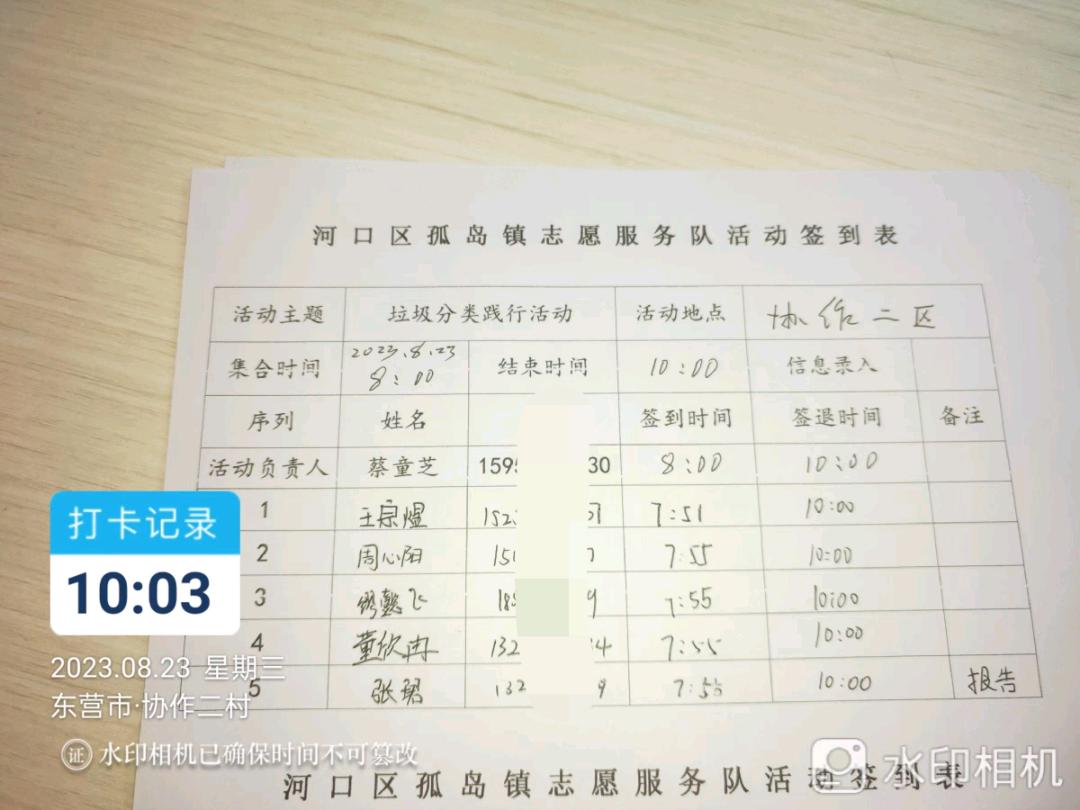 河口区孤岛镇志愿服务队活动签到表
活动主题 垃圾分类践行活动 活动地点 协作二区
集合时间 2023.8.23 8:00 结束时间 10:00 信息录入
序列 姓名 签到时间 签退时间 备注
活动负责人 蔡童芝 159 30 8:00 10:00
1 王宗煜 152 7:51 10:00
2 周心阳 15 7:55 10:00
3 飞 18 9 7:55 10:00
4 董欣冉 132 4 7:55 10:00
5 张珺 132 9 7:55 10:00 报告
打卡记录
10:03
2023.08.23 星期三
东营市·协作二村
证 水印相机已确保时间不可篡改
水印相机
河口区孤岛镇志愿服务队活动签到表